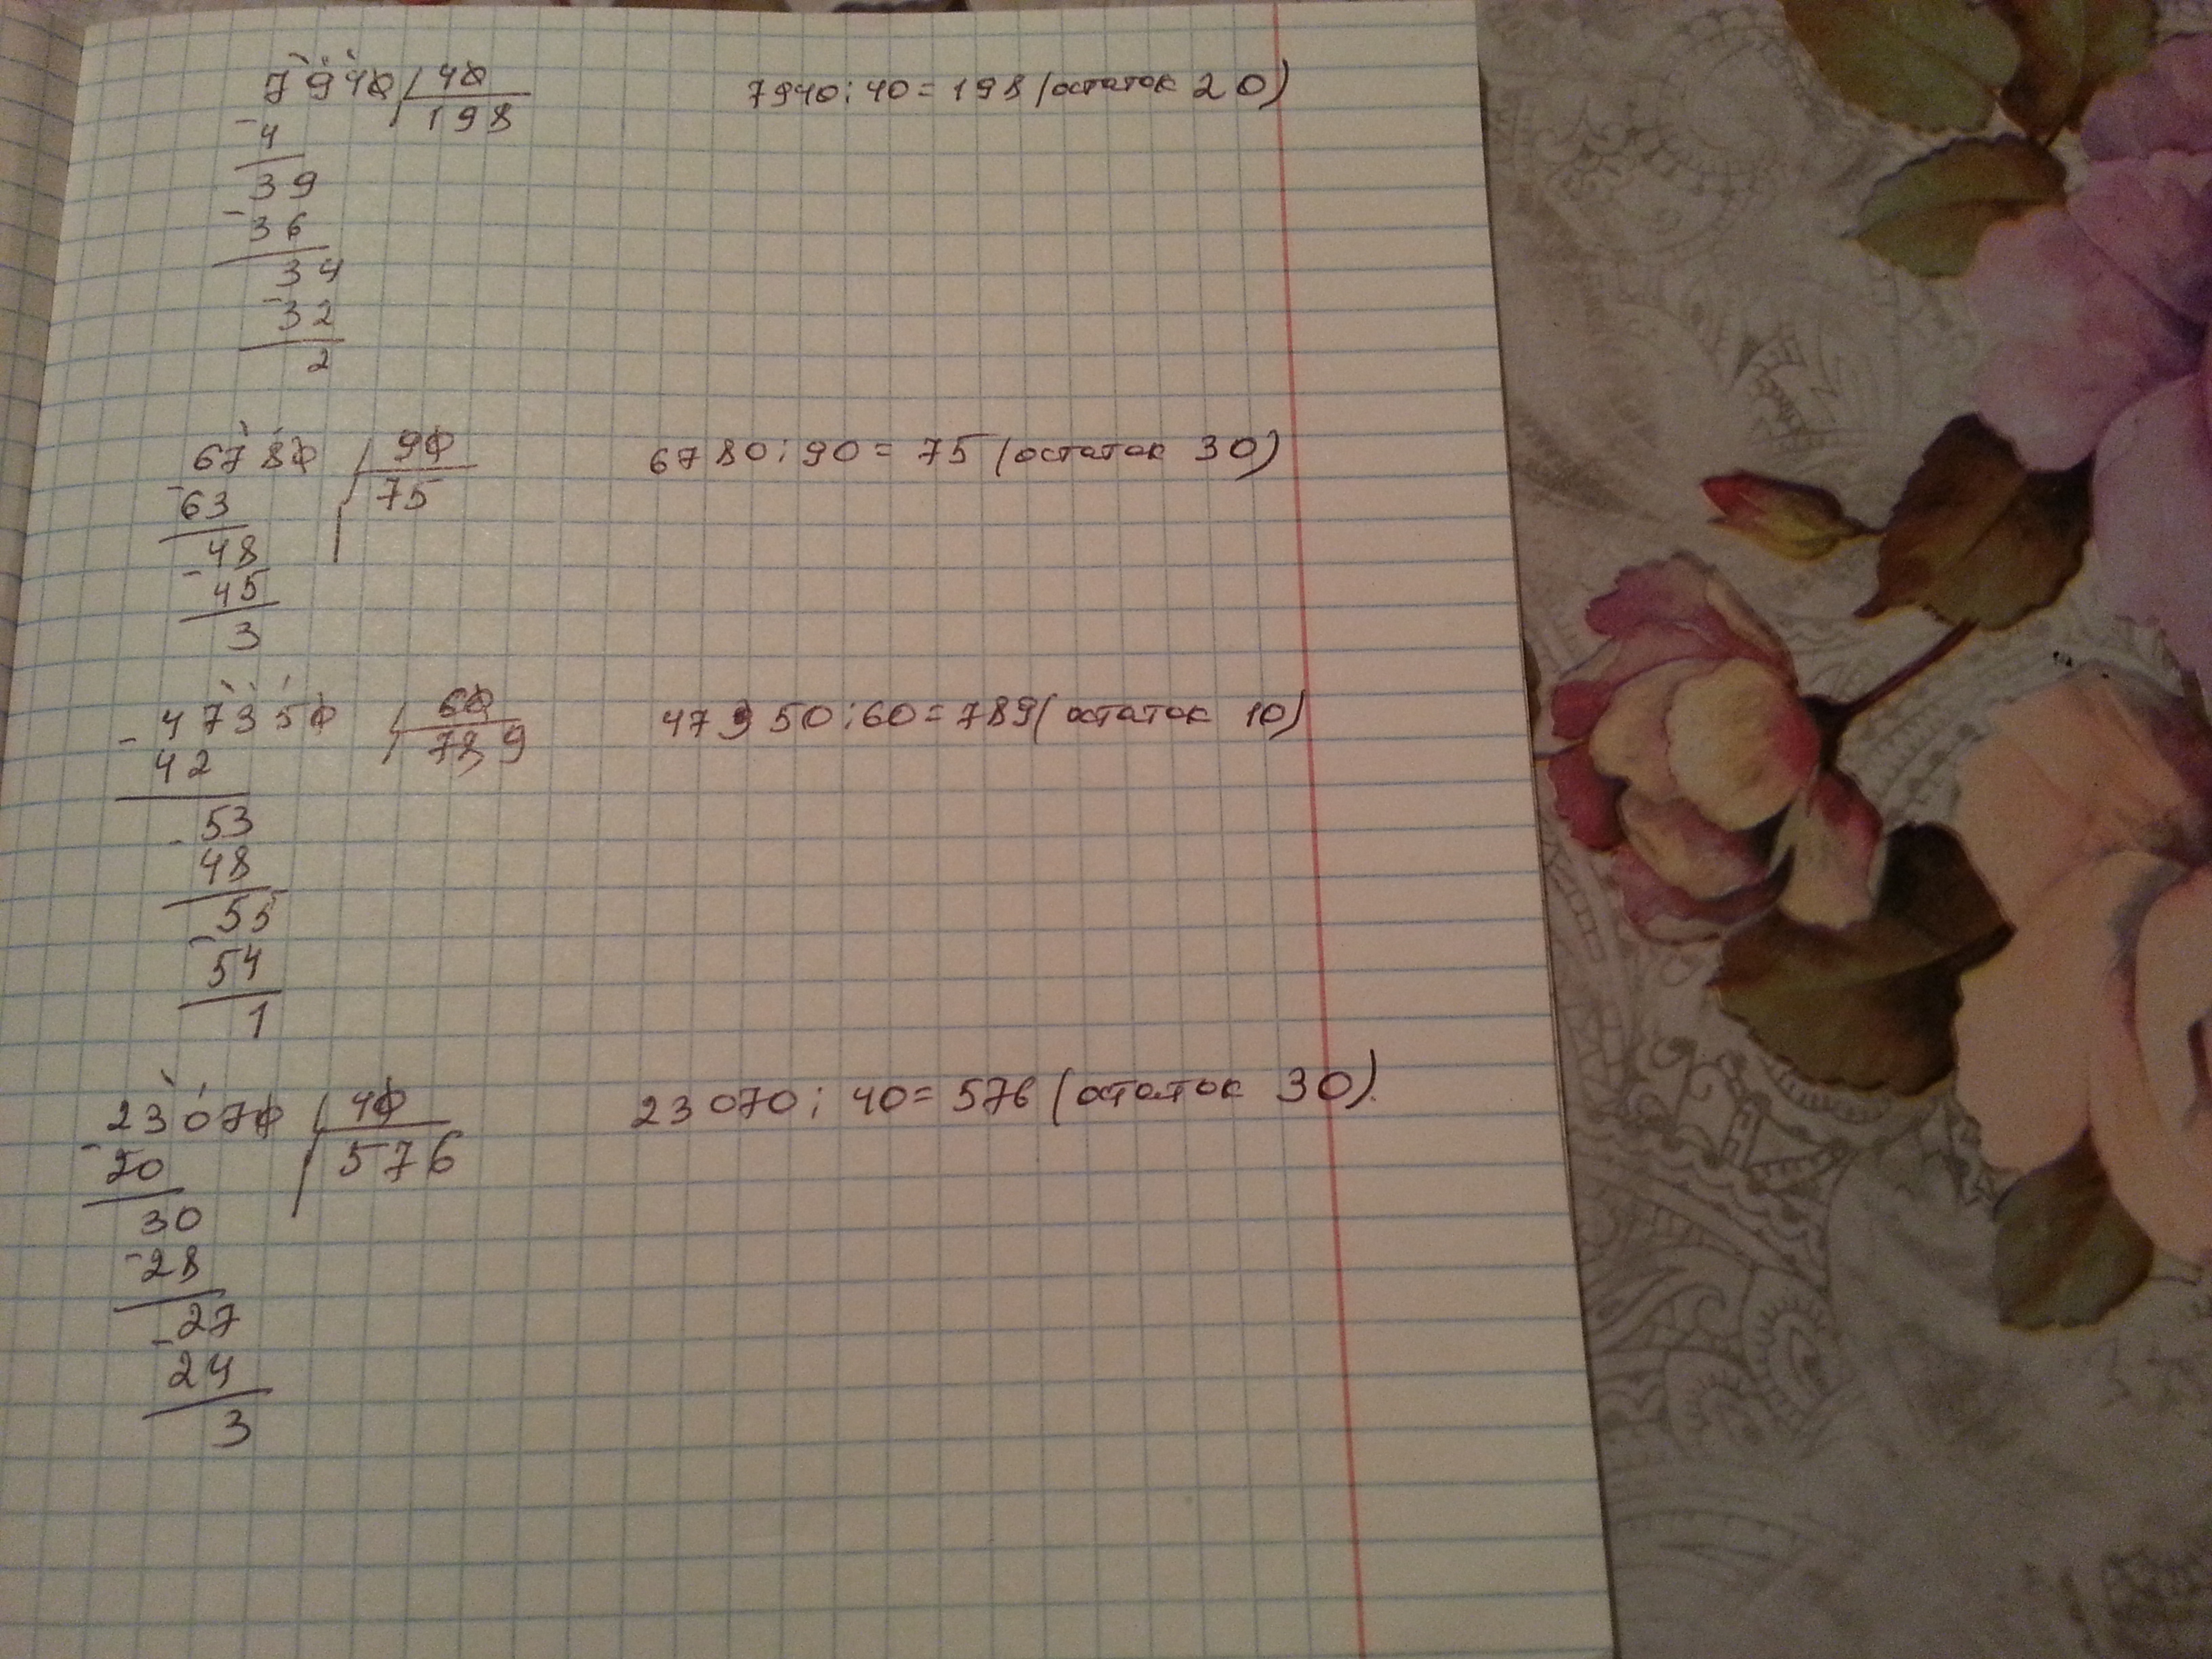 7940 40 7940:40=198 (остаток 20)
198
-4
39
-36
34
-32
2
6780 90 6780:90=75 (остаток 30)
-63 75
48
-45
3
-47350 60 47350:60=789 (остаток 10)
42 789
-53
48
55
-54
1
23070 40 23070:40=576 (остаток 30).
-20 576
30
-28
27
-24
3